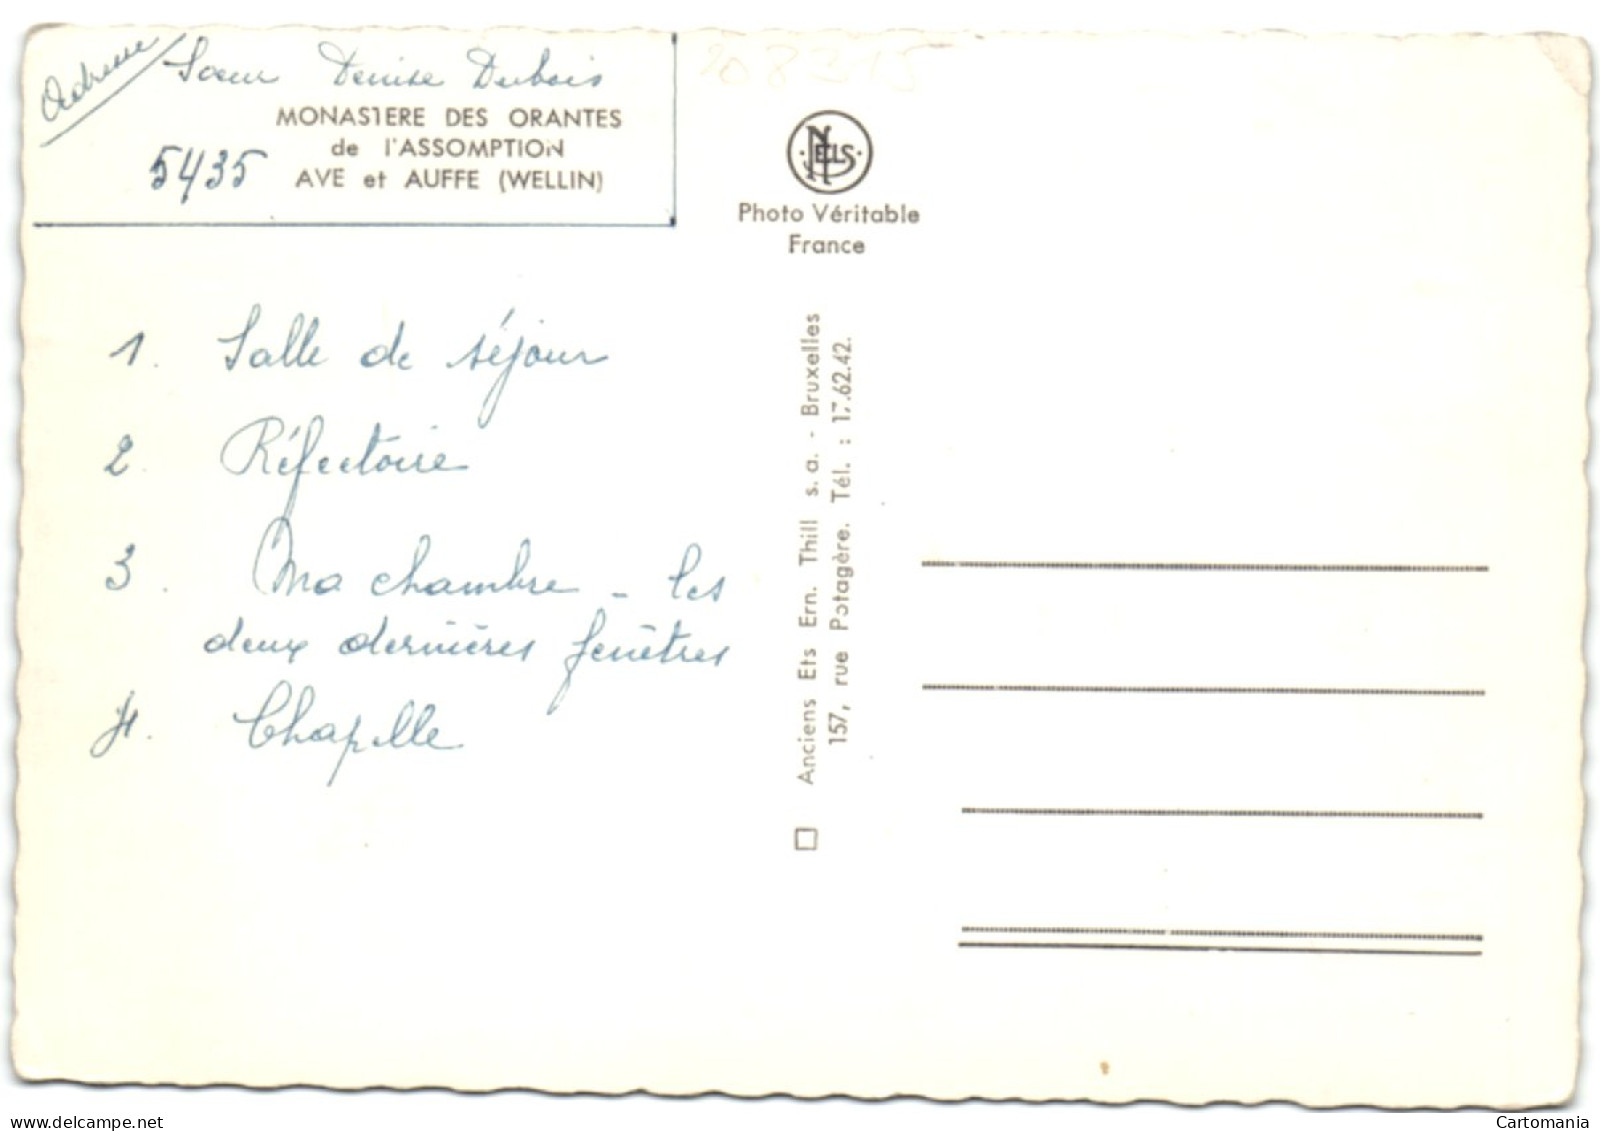 Adresse
Soeur Denise Dubois
MONASTERE DES ORANTES
de l'ASSOMPTION
5435 AVE et AUFFE (WELLIN)
208315
NELS
Photo Véritable
France
1. Salle de séjour
2. Réfectoire
3. Ma chambre - les
deux dernières fenêtres
4. Chapelle
Anciens Ets Ern. Thill s.a. - Bruxelles
157, rue Potagère. Tél. : 17.62.42.
www.delcampe.net
Cartomania